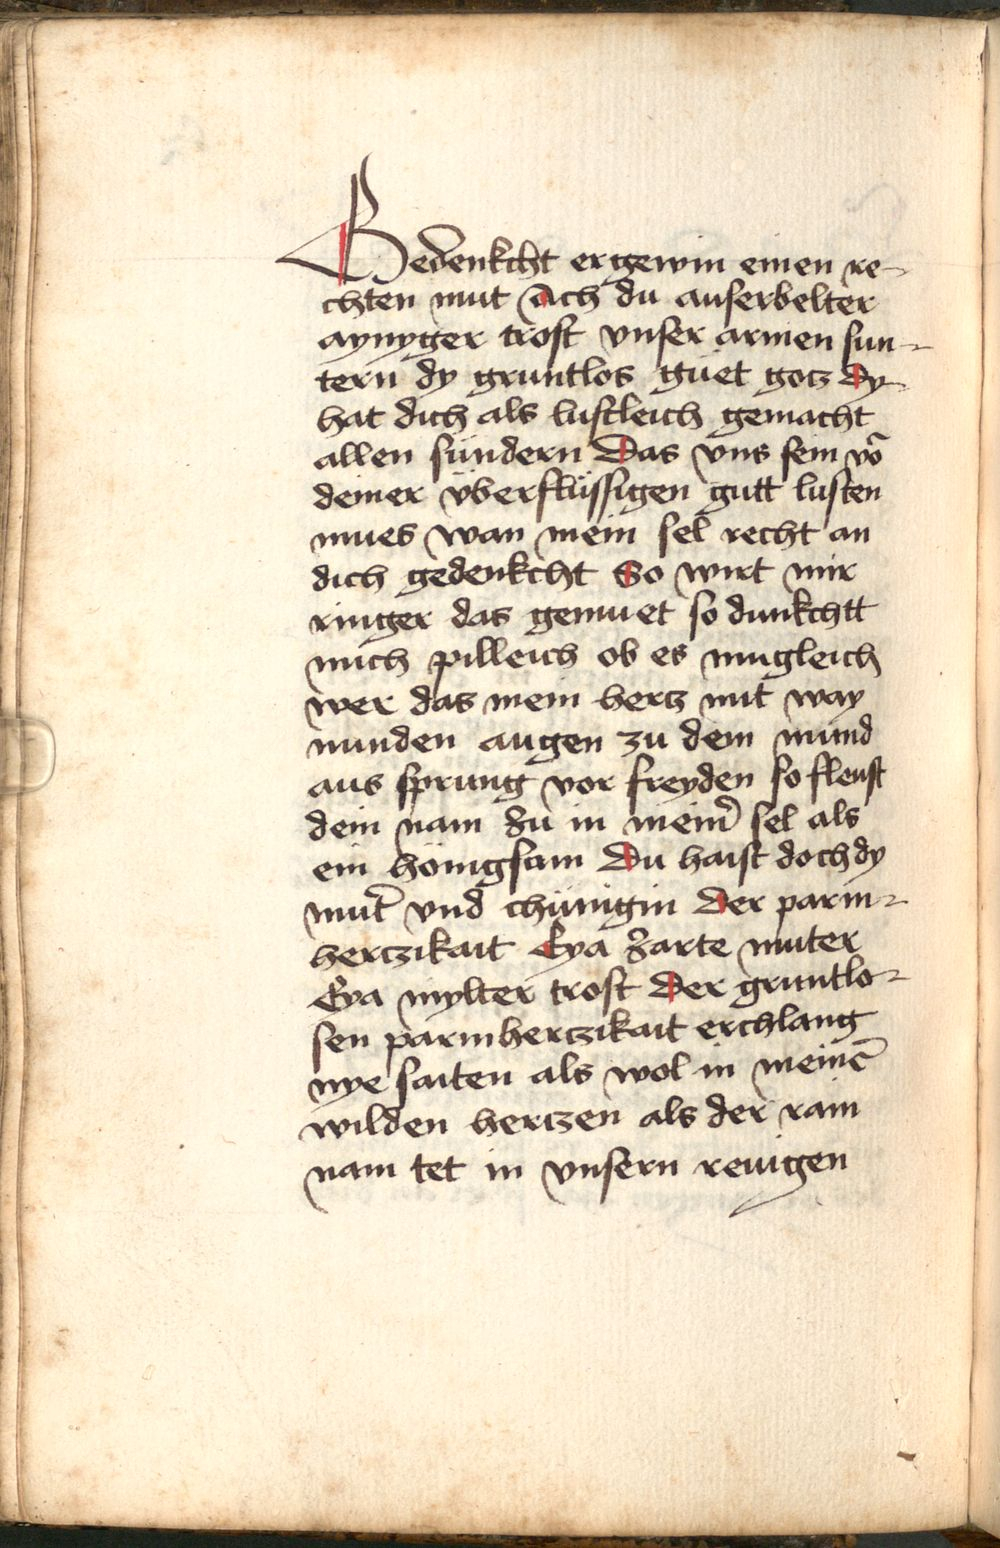 Bedenkcht er gewin einen re-
chten mut ach du auserbelter
aynyger trost vnser armen sun-
tern dy gruntlos güet gotz Dy
hat dich als lustleich gemacht
allen sündern Das vns sein vō
deiner vberflüssigen gutt lusten
mues wan mein sel recht an
dich gedenkcht So wirt mir
ringer das gemuet so dunkchtt
mich pilleich ob es mugleich
wer das mein hertz mit way
nunden augen zu dem mund
aus sprung vor freyden so fleust
dein nam zu in meinr̄ sel als
ein hönigsam Du haist doch dy
mut̄ vnd chünigin Der parm-
herczikait Eya zarte muter
Eya mylter trost Der gruntlo-
sen parmherczikait erchlang
nye saiten als wol in meinē
wilden hertzen als der rain
nam tet in vnsern reuigen